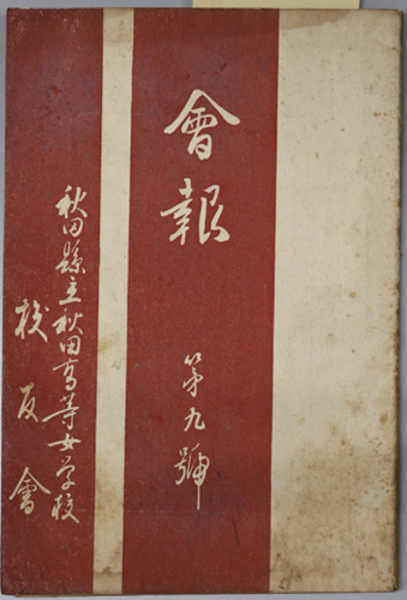 會報
第九號
秋田縣立秋田高等女学校
校友會